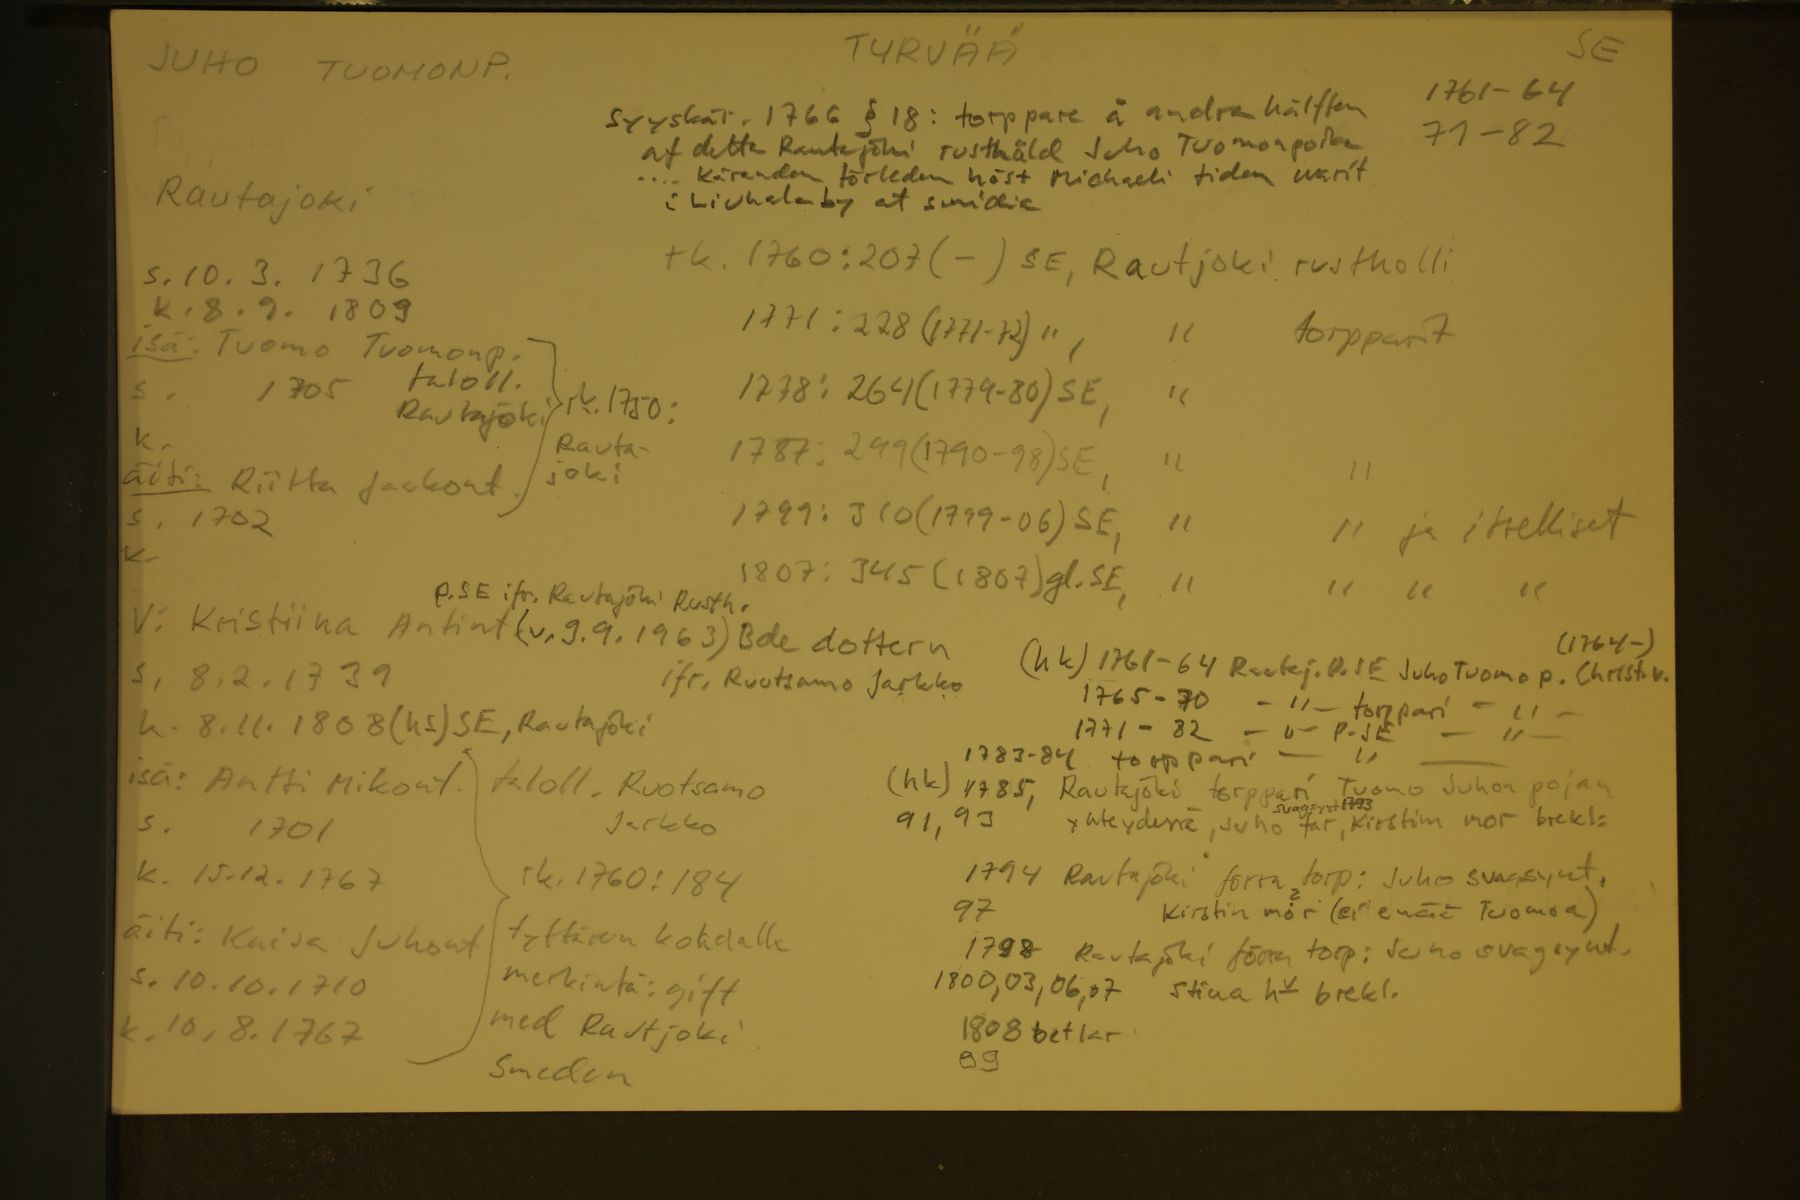 JUHO TUOMONP.
TYRVÄÄ
SE
1761-64
71-82
Syyskär. 1766 § 18: torppare å andra hälften
af detta Rautajöki rusthåld Juho Tuomonpoika
.... Käranden förleden höst Michaeli tiden warit
i Liuhala by at smidia
Rautajoki
s. 10. 3. 1736
k. 8. 9. 1809
isä: Tuomo Tuomonp.
s. 1705 taloll.
Rautajöki
k.
äiti: Riitta Jaakont.
s. 1702
k.
rk. 1750:
Rauta-
joki
rk. 1760:207(-) SE, Rautjoki rustholli
1771:228(1771-72) ", " torpparit
1778: 264(1779-80)SE, "
1787: 299(1790-98)SE, " "
1799: 310(1799-06)SE, " " ja itselliset
1807: 345(1807)gl.SE, " " " "
p.SE ifr. Rautajöki Rusth.
V: Kristiina Antint(v. 9.9.1963) Bde dottern
ifr. Ruotsamo Jarkko
s. 8.2.1739
k. 8.11.1808(hs)SE, Rautajöki
isä: Antti Mikont. taloll. Ruotsamo
Jarkko
s. 1701
k. 15.12.1767
äiti: Kaisa Juhont
s. 10.10.1710
k. 10.8.1767
rk. 1760:184
tyttären kohdalla
merkintä: gift
med Rautjoki
Smeden
(1764-)
(hk) 1761-64 Rautaj. p.SE Juho Tuomop. Christ. v.
1765-70 - " - torppari - " -
1771-82 - " - p.SE - " -
1783-84 torppari - "
(hk) 1785, Rautajöki torppari Tuomo Juhon pojan
svagsynt 1793
91, 93 yhteydessä, Juho far, Kirstin mor brekl:
1794 Rautajöki förra torp: Juho svagsynt.
97 Kirstin mor (ei enää Tuomoa)
1798 Rautajöki förra torp: Juho svagsynt.
1800,03,06,07 Stina hv brekl.
1808 betlar
09